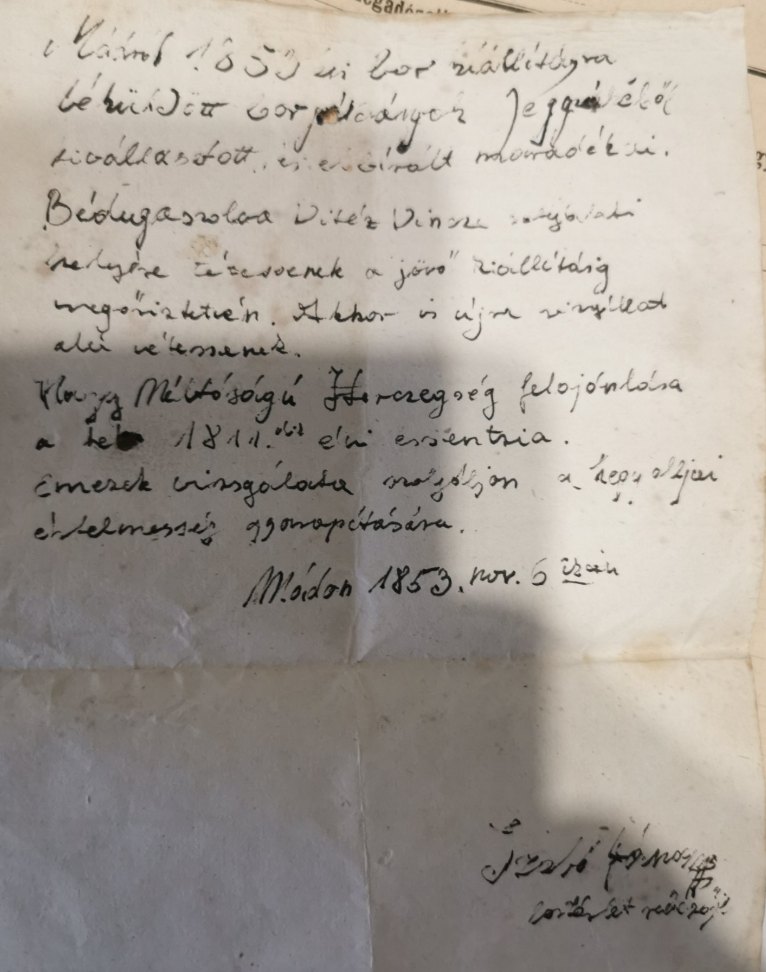 1853 évi bor kiállításra
beküldött borpéldányok Jegyzékéből
kiválasztott és maradékai.
Bédugaszolva Vitéz Vincze
helyére tétessenek a jövő kiállításig
megőriztetvén. Akkor is újra vizsgálat
alá vétessenek.
Nagy Méltóságú Herczegség felajánlása
a 1811. évi essentzia.
Emezek vizsgálata szolgáljon a hegyaljai
értelmesség gyarapítására.
Mádon 1853. nov. 6
Szabó János